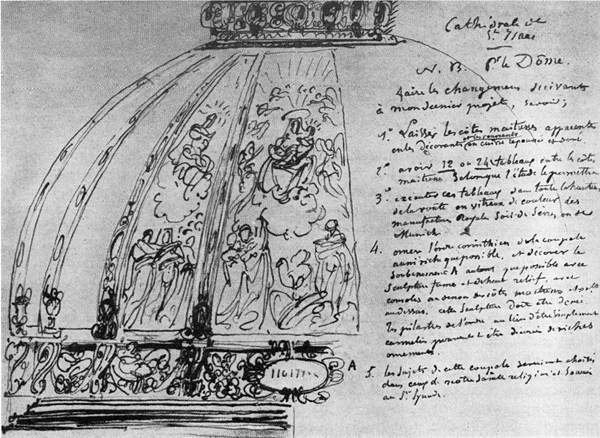 Cathédral de
St Isaac
N. B. Pr le Dôme.
faire les changemens suivants
à mon dernier projet, savoir;
1° Laisser les côtes maitresses apparentes
en les décorants, en cuivre repoussé et doré.
2° avoir 12 ou 24 tableaux entre les côtes
maitresses selon que l'étude le permettra
3° executer ces tableaux dans toute la hauteur
de la voute en vitreaux de couleur des
manufactures Royales soit de Sèvres ou de
Munich.
4. orner l'ordre corinthien de la coupole
aussi riche que possible, et décorer le
soubassement A autant que possible avec
sculpture ferme et d'un haut relief, avec
consoles des côtes maitresses
au dessus. cette sculpture doit être dorée
les pilastres de l'ordre au lieu d'être simplement
cannelés être décorés de riches
ornemens.
A
5. les sujets de cette coupole choisis
dans ceux de notre sainte religion et
au St Synode.